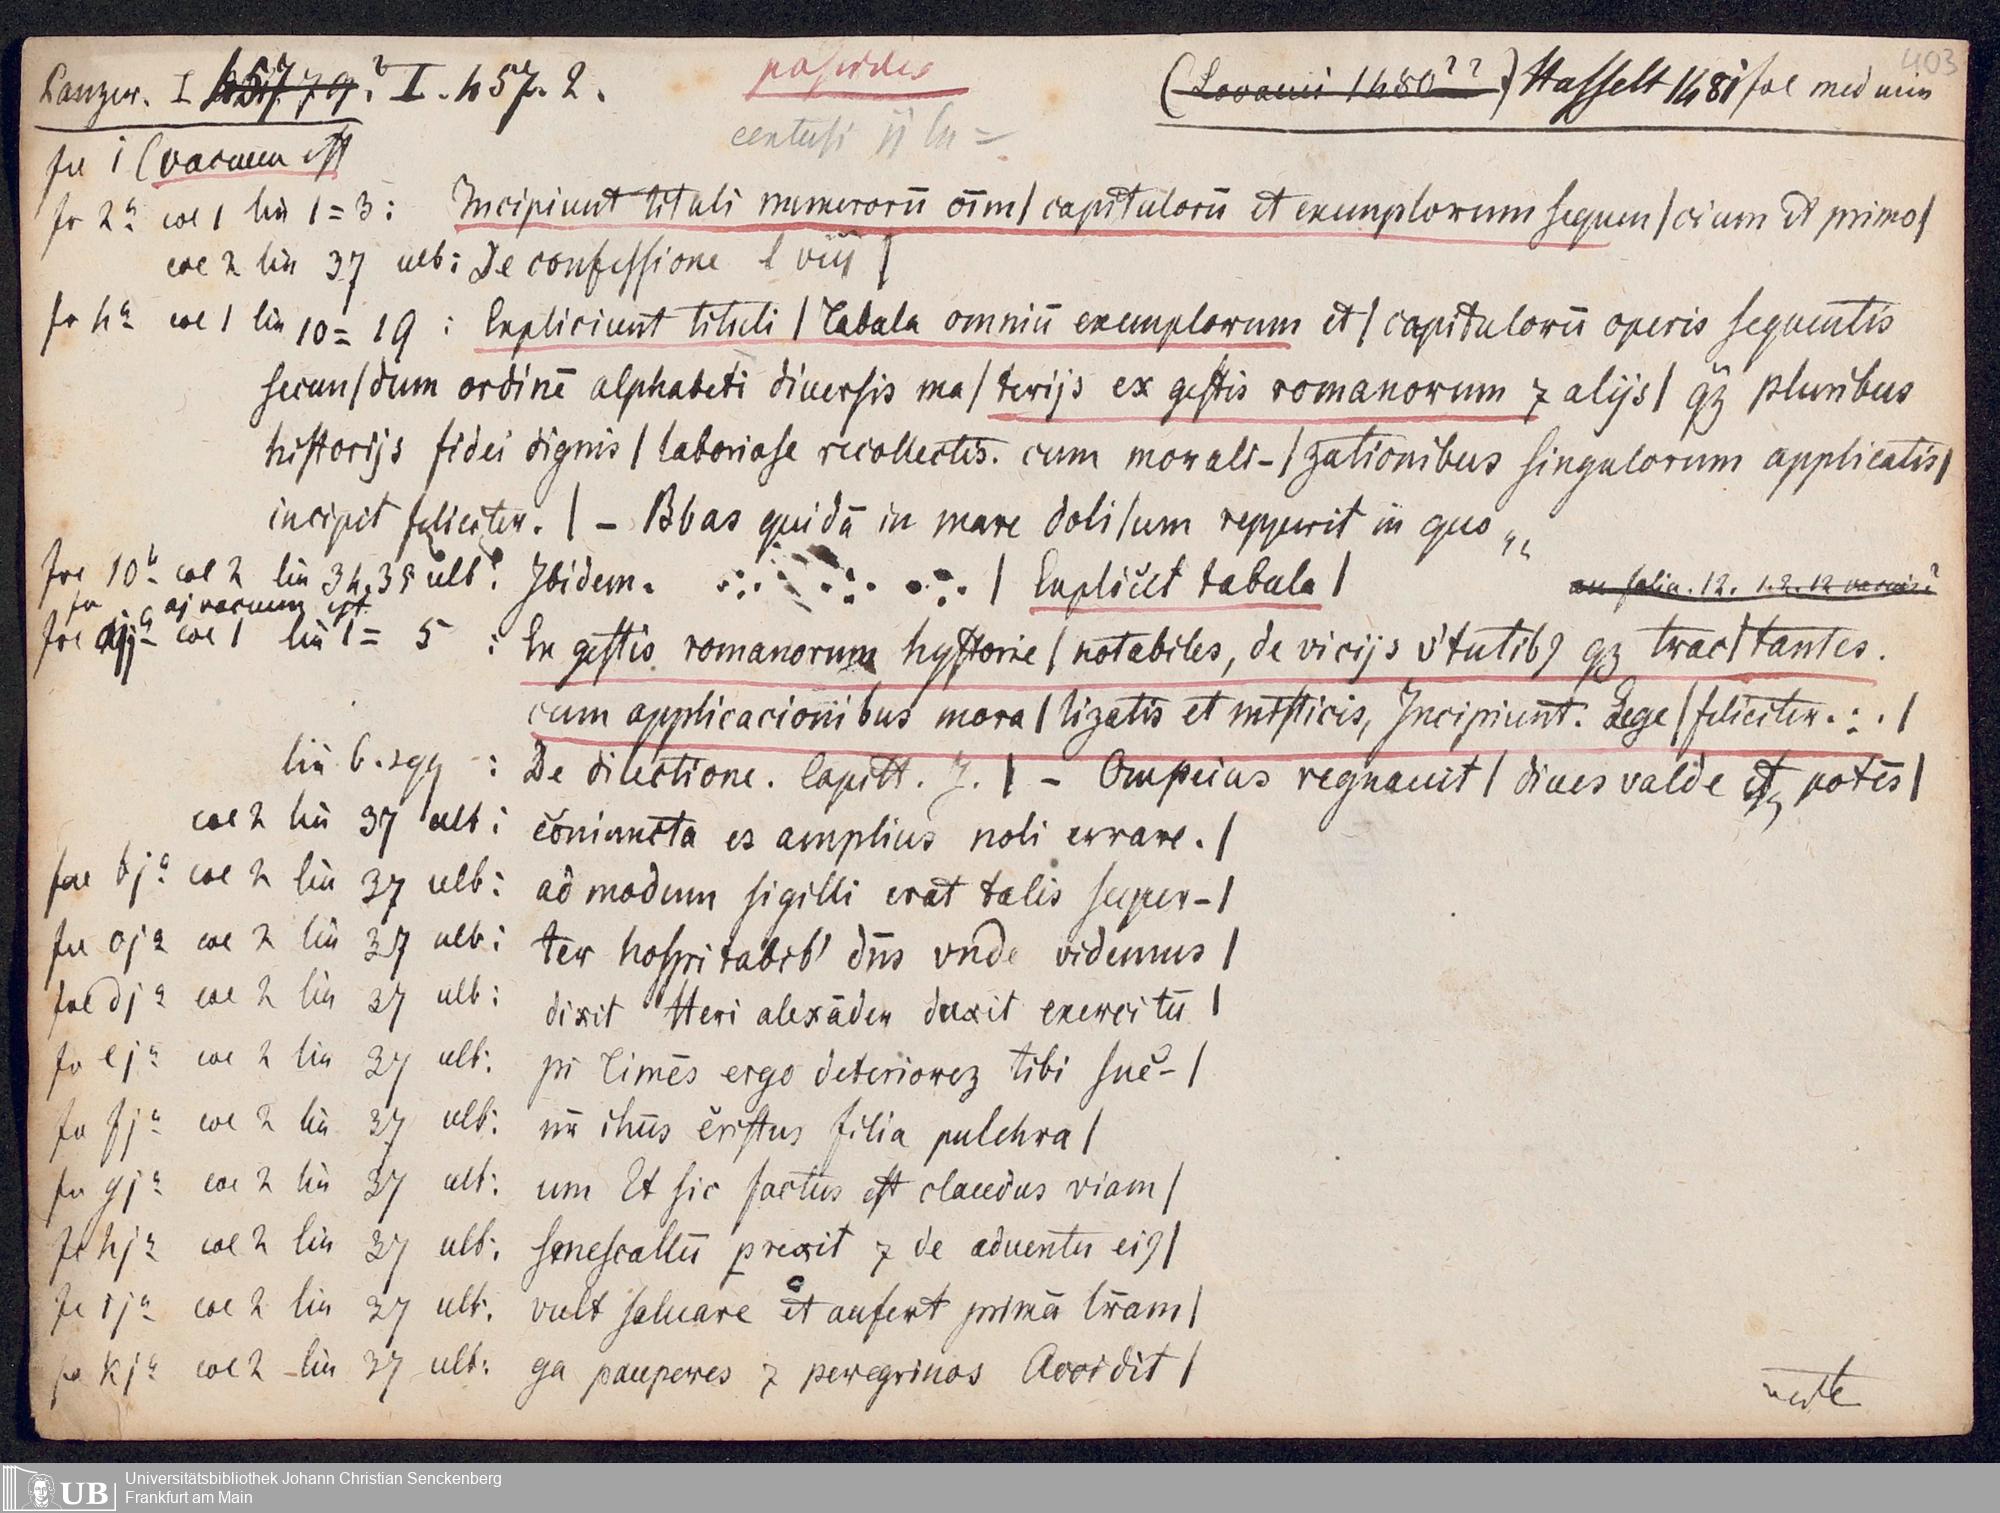 Panzer. I I. 457. 2. (Lovanii 1480??) Hasselt 1481 fol med min 403
fol 1 (vacuum est
fo 2a col 1 lin 1=3: Incipiunt tituli numerorū oīm/ capitulorū et exemplorum sequen/cium et primo/
col 2 lin 37 ult: De confessione l viij /
fo 4a col 1 lin 10=19: Expliciunt tituli / Tabula omniū exemplorum et/ capitulorū operis sequentis
secun/dum ordinē alphabeti diuersis ma/terijs ex gestis romanorum ⁊ alijs/ qꝫ pluribus
historijs fidei dignis/ laboriose recollectis. cum morali-/zationibus singulorum applicatis/
incipit feliciter. / - Bbas quidā in mare doli/um repperit in quo „
fol 10b col 2 lin 34.35 ult: Ibidem. / Explicit tabula /
fo aj vacuum est
fol col 1 lin 1= 5 : Ex gestis romanorum hystorie / notabiles, de vicijs v'tutibꝰ qꝫ trac/tantes.
cum applicacionibus mora/lizatis et misticis, Incipiunt. Lege/feliciter. : . /
lin 6. sqq : De dilectione. Capitt. J. / - Ompeius regnauit/ diues valde et potēs/
col 2 lin 37 ult: cōniuncta es amplius noli errare. /
fol bja col 2 lin 37 ult: ad modum sigilli erat talis super-/
fol cja col 2 lin 37 ult: ter hospitabit' dn̄s vnde videmus /
fol dja col 2 lin 37 ult: dixit Heri alexāder duxit exercitū /
fo eja col 2 lin 37 ult: pi Timēs ergo deterioreꝫ tibi suc̄-/
fo fja col 2 lin 37 ult: nr̄ ihūs c̄ristus filia pulchra/
fo gja col 2 lin 37 ult: um Et sic factus est claudus viam/
fo hja col 2 lin 37 ult: senescallū prexit ⁊ de aduentu eiꝰ/
fo ija col 2 lin 37 ult: vult saluare et aufert primā lr̄am/
fo kja col 2 lin 37 ult: ga pauperes ⁊ peregrinos Accidit /
verte
UB Universitätsbibliothek Johann Christian Senckenberg
Frankfurt am Main